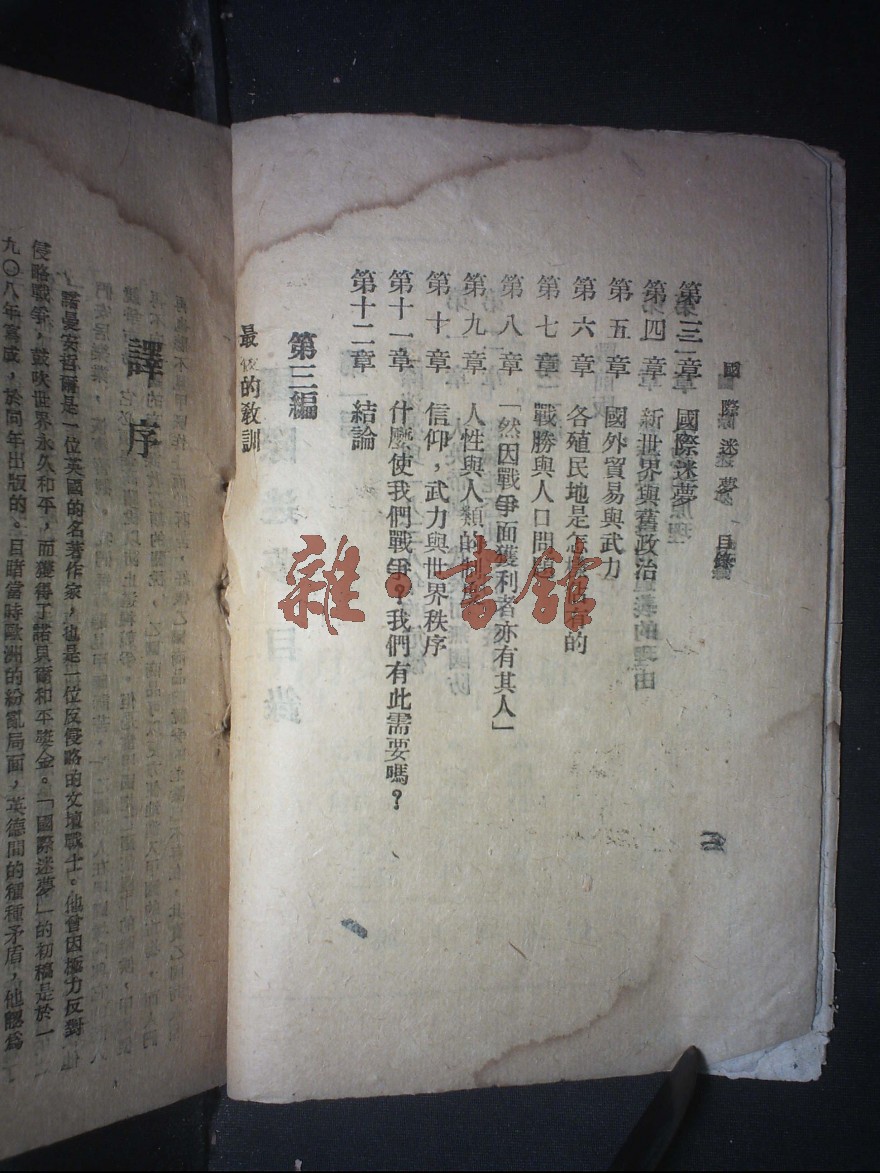 國際迷夢 目錄
第三章 國際迷夢
第四章 新世界與舊政治
第五章 國外貿易與武力
第六章 各殖民地是怎 有的
第七章 戰勝與人口問題
第八章 「然因戰爭而獲利者亦有其人」
第九章 人性與人類的制度
第十章 信仰，武力與世界秩序
第十一章 什麼使我們戰爭？我們有此需要嗎？
第十二章 結論
第三編
最後的教訓
譯序
諾曼安哲爾是一位英國的名著作家，也是一位反侵略的文壇戰士。他曾因極力反對
侵略戰爭，鼓吹世界永久和平，而獲得了諾貝爾和平獎金。「國際迷夢」的初稿是於一
九〇八年寫成，於同年出版的。目睹當時歐洲的紛亂局面，英德間的種種矛盾，他認為
雜·書館